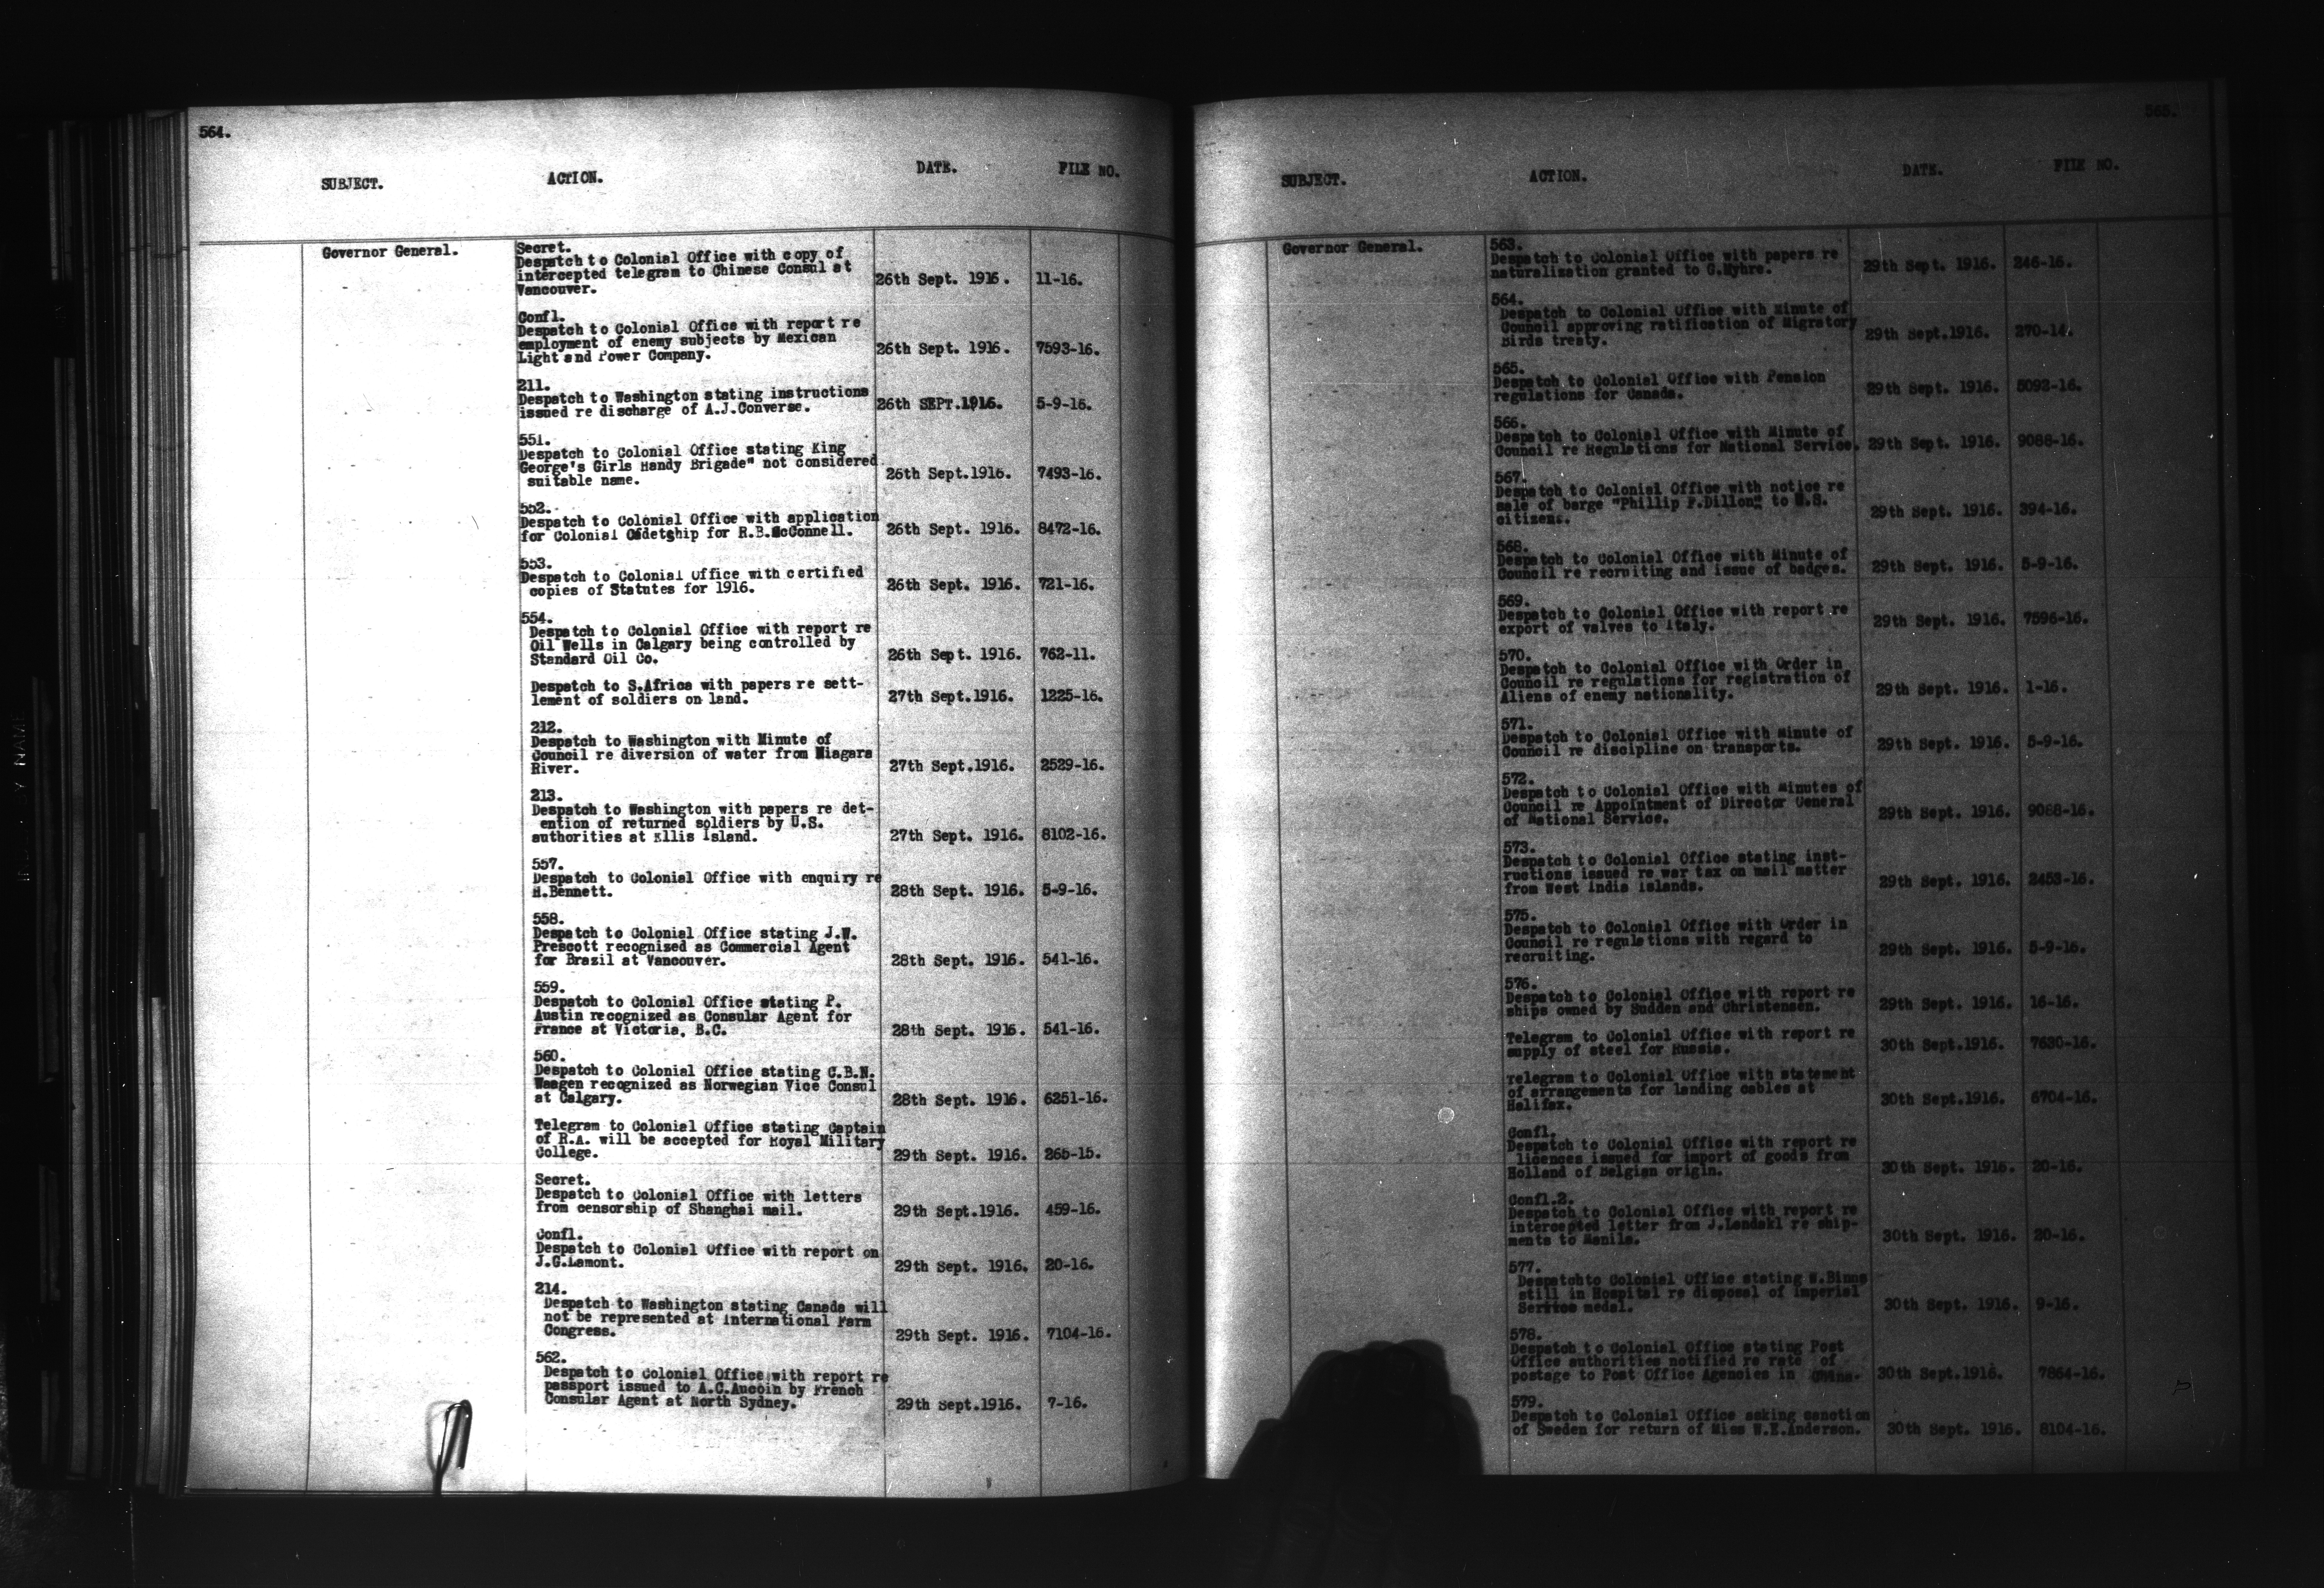 564.
SUBJECT. ACTION. DATE. FILE NO.
Governor General. Secret.
Despatch to Colonial Office with copy of
intercepted telegram to Chinese Consul at
Vancouver. 26th Sept. 1916. 11-16.
Confl.
Despatch to Colonial Office with report re
employment of enemy subjects by Mexican
Light and Power Company. 26th Sept. 1916. 7593-16.
211.
Despatch to Washington stating instructions
issued re discharge of A.J.Converse. 26th SEPT.1916. 5-9-16.
551.
Despatch to Colonial Office stating King
George's Girls Handy Brigade" not considered
suitable name. 26th Sept.1916. 7493-16.
552.
Despatch to Colonial Office with application
for Colonial Cadetship for R.B.McConnell. 26th Sept. 1916. 8472-16.
553.
Despatch to Colonial Office with certified
copies of Statutes for 1916. 26th Sept. 1916. 721-16.
554.
Despatch to Colonial Office with report re
Oil Wells in Calgary being controlled by
Standard Oil Co. 26th Sept. 1916. 762-11.
Despatch to S.Africa with papers re sett-
lement of soldiers on land. 27th Sept.1916. 1225-16.
212.
Despatch to Washington with Minute of
Council re diversion of water from Niagara
River. 27th Sept.1916. 2529-16.
213.
Despatch to Washington with papers re det-
ention of returned soldiers by U.S.
authorities at Ellis Island. 27th Sept. 1916. 8102-16.
557.
Despatch to Colonial Office with enquiry re
H.Bennett. 28th Sept. 1916. 5-9-16.
558.
Despatch to Colonial Office stating J.W.
Prescott recognized as Commercial Agent
for Brazil at Vancouver. 28th Sept. 1916. 541-16.
559.
Despatch to Colonial Office stating P.
Austin recognized as Consular Agent for
France at Victoria, B.C. 28th Sept. 1916. 541-16.
560.
Despatch to Colonial Office stating C.B.N.
Waagen recognized as Norwegian Vice Consul
at Calgary. 28th Sept. 1916. 6251-16.
Telegram to Colonial Office stating Captain
of R.A. will be accepted for Royal Military
College. 29th Sept. 1916. 265-15.
Secret.
Despatch to Colonial Office with letters
from censorship of Shanghai mail. 29th Sept.1916. 459-16.
Confl.
Despatch to Colonial Office with report on
J.G.Lamont. 29th Sept. 1916. 20-16.
214.
Despatch to Washington stating Canada will
not be represented at International Farm
Congress. 29th Sept. 1916. 7104-16.
562.
Despatch to Colonial Office with report re
passport issued to A.C.Aucoin by French
Consular Agent at North Sydney. 29th Sept.1916. 7-16.
565.
SUBJECT. ACTION. DATE. FILE NO.
Governor General. 563.
Despatch to Colonial Office with papers re
naturalization granted to G.Myhre. 29th Sept. 1916. 246-16.
564.
Despatch to Colonial Office with Minute of
Council approving ratification of Migratory
Birds treaty. 29th Sept.1916. 270-14.
565.
Despatch to Colonial Office with Pension
regulations for Canada. 29th Sept. 1916. 5093-16.
566.
Despatch to Colonial Office with Minute of
Council re Regulations for National Service. 29th Sept. 1916. 9088-16.
567.
Despatch to Colonial Office with notice re
sale of barge "Phillip F.Dillon" to U.S.
citizens. 29th Sept. 1916. 394-16.
568.
Despatch to Colonial Office with Minute of
Council re recruiting and issue of badges. 29th Sept. 1916. 5-9-16.
569.
Despatch to Colonial Office with report re
export of valves to Italy. 29th Sept. 1916. 7596-16.
570.
Despatch to Colonial Office with Order in
Council re regulations for registration of
Aliens of enemy nationality. 29th Sept. 1916. 1-16.
571.
Despatch to Colonial Office with Minute of
Council re discipline on transports. 29th Sept. 1916. 5-9-16.
572.
Despatch to Colonial Office with Minutes of
Council re Appointment of Director General
of National Service. 29th Sept. 1916. 9088-16.
573.
Despatch to Colonial Office stating inst-
ructions issued re war tax on mail matter
from West India Islands. 29th Sept. 1916. 2453-16.
575.
Despatch to Colonial Office with Order in
Council re regulations with regard to
recruiting. 29th Sept. 1916. 5-9-16.
576.
Despatch to Colonial Office with report re
ships owned by Sudden and Christensen. 29th Sept. 1916. 16-16.
Telegram to Colonial Office with report re
supply of steel for Russia. 30th Sept.1916. 7630-16.
Telegram to Colonial Office with statement
of arrangements for landing cables at
Halifax. 30th Sept.1916. 6704-16.
Confl.
Despatch to Colonial Office with report re
licences issued for import of goods from
Holland of Belgian origin. 30th Sept. 1916. 20-16.
Confl.2.
Despatch to Colonial Office with report re
intercepted letter from J.Landakl re ship-
ments to Manila. 30th Sept. 1916. 20-16.
577.
Despatchto Colonial Office stating W.Binns
still in Hospital re disposal of Imperial
Service medal. 30th Sept. 1916. 9-16.
578.
Despatch to Colonial Office stating Post
Office authorities notified re rate of
postage to Post Office Agencies in China. 30th Sept.1916. 7864-16.
579.
Despatch to Colonial Office asking sanction
of Sweden for return of Miss W.E.Anderson. 30th Sept. 1916. 8104-16.